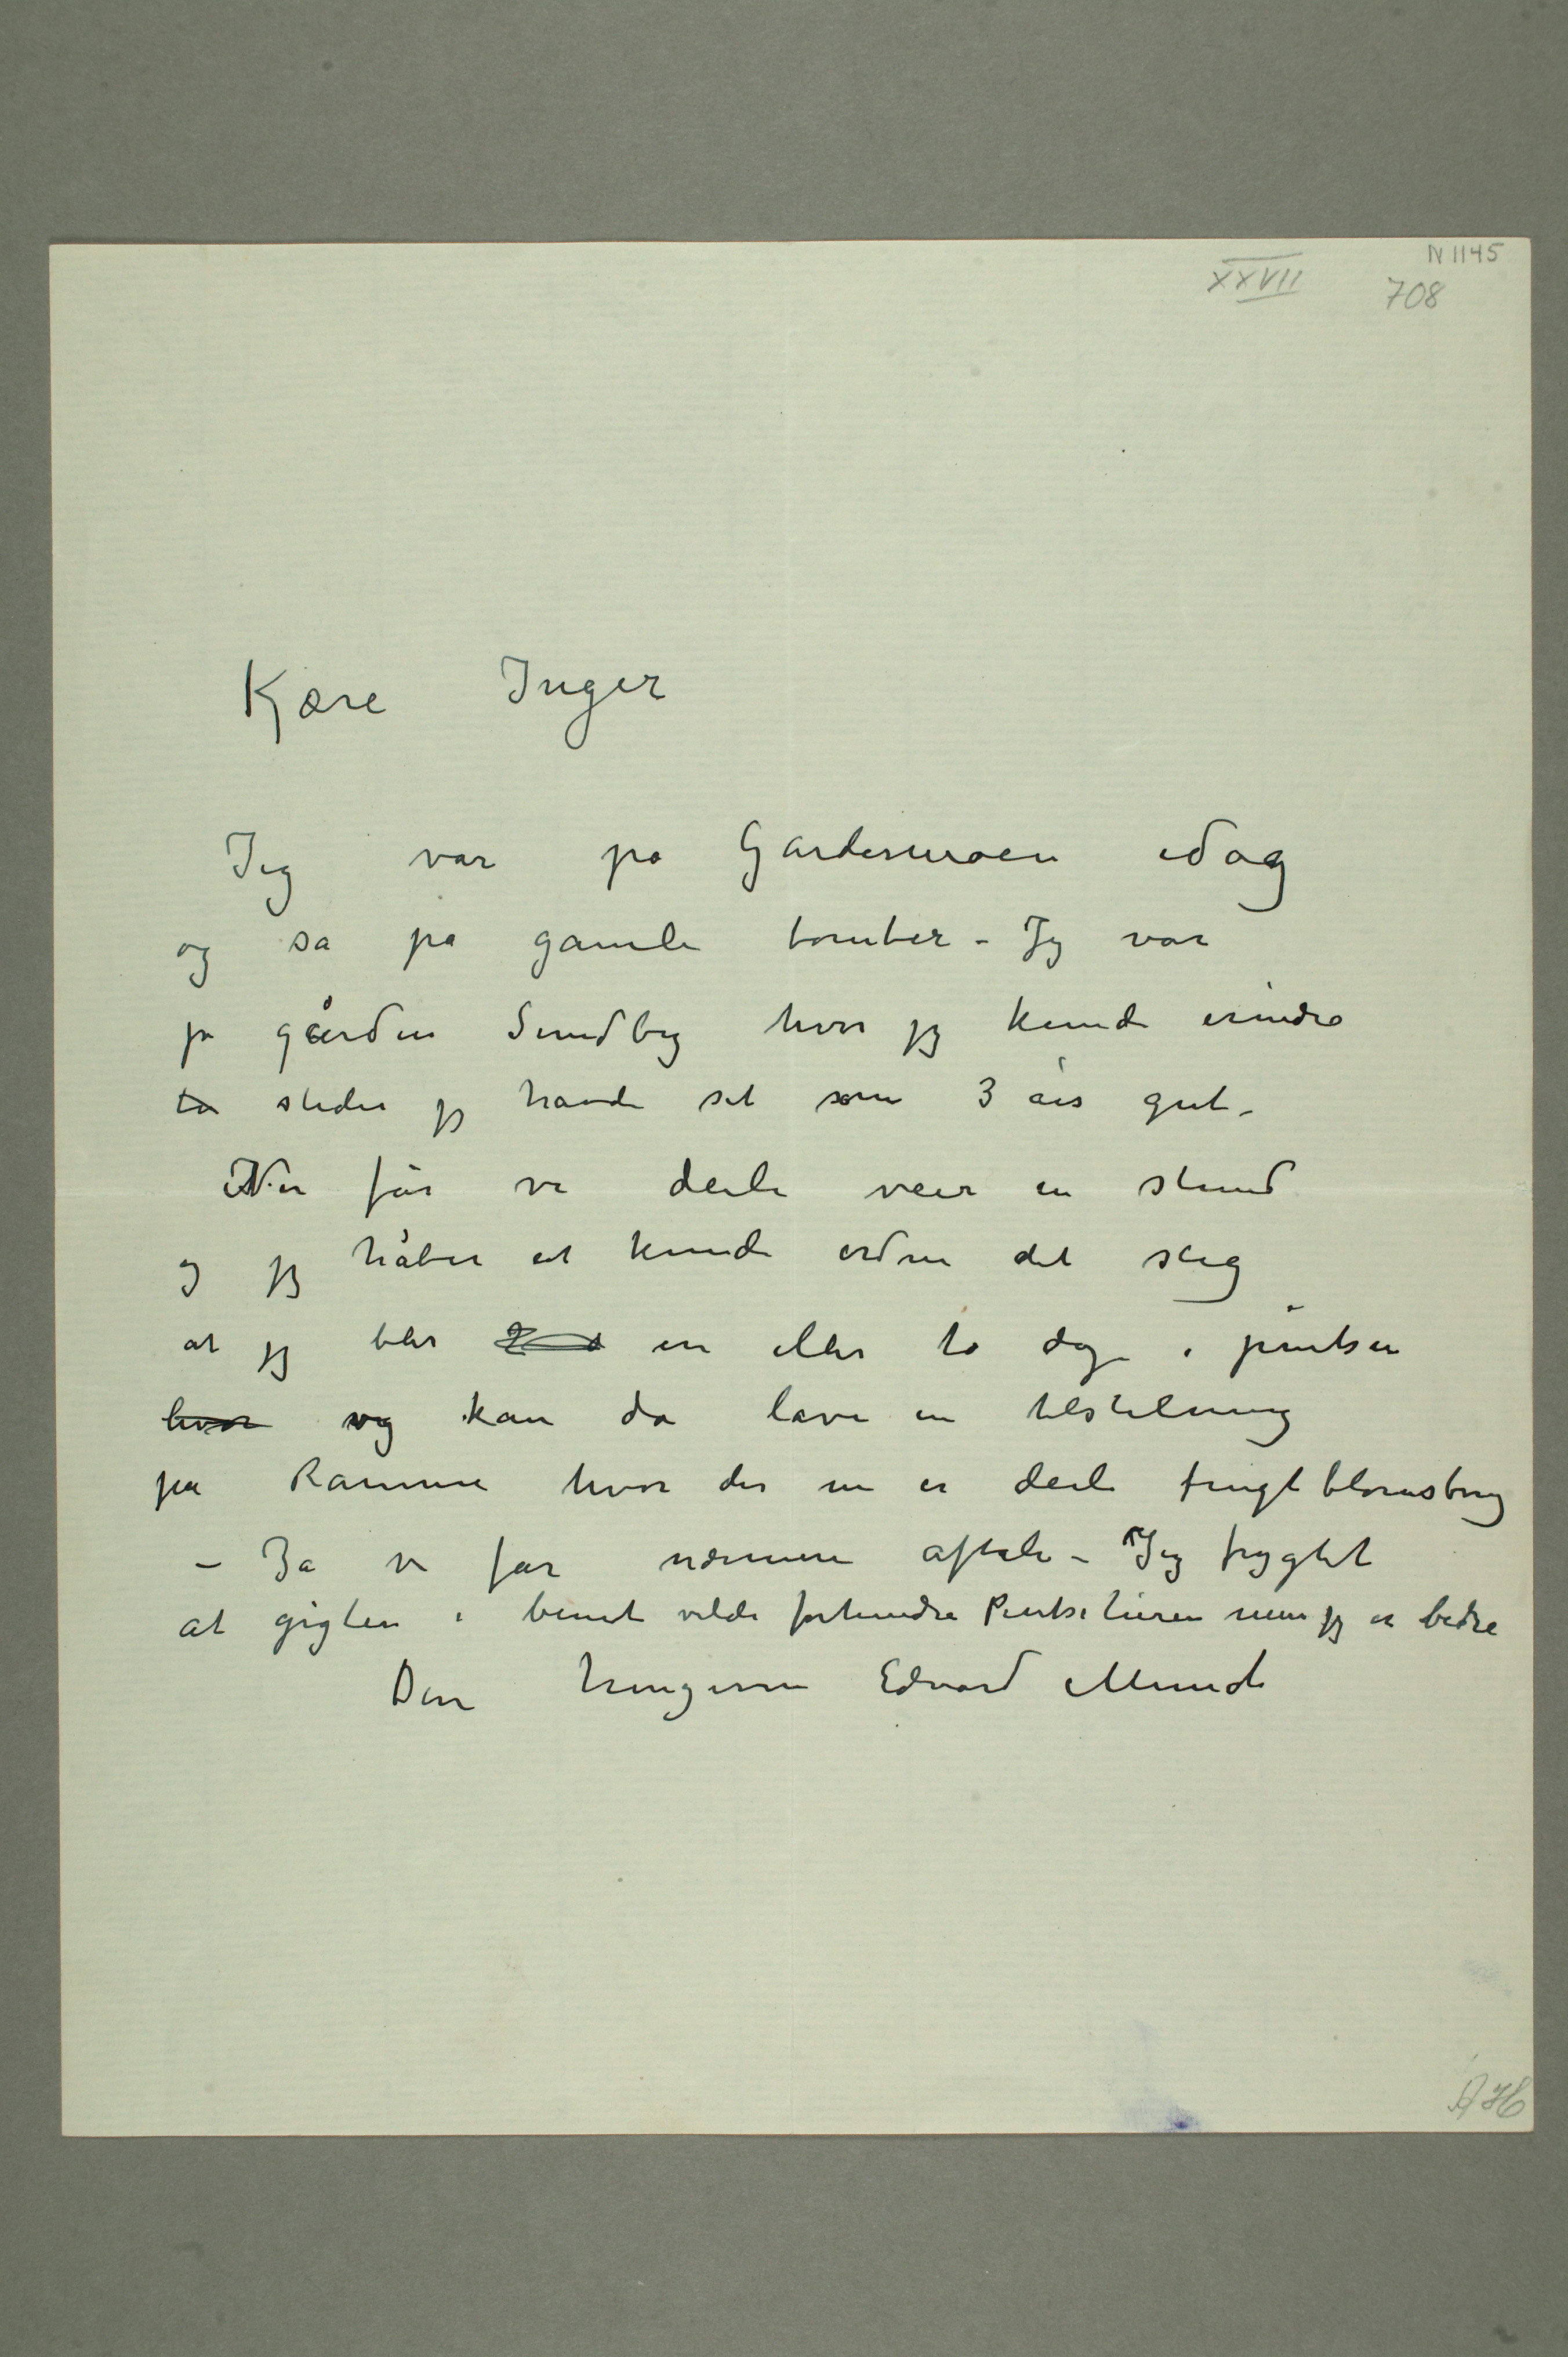 N 1145
XXVII 708
Kjære Inger
Jeg var på Gardermoen idag
og så på gamle tomter – Jeg var
på gården Sundby hvor jeg kunde erindre
to steder jeg havde set som 3 års gut –
Nu får vi deile veir en stund
og jeg håber at kunde ordne det slig
at jeg blir en eller to dage i pintsen
hvor vi kan da lave en tilstelning
på Ramme hvor der nu er deile frugtblomstring
– Ja vi får nærmere aftale – Jeg frygtet
at gigten i benet vilde forhindre Pintseturen men jeg er bedre
Din hengivne Edvard Munch